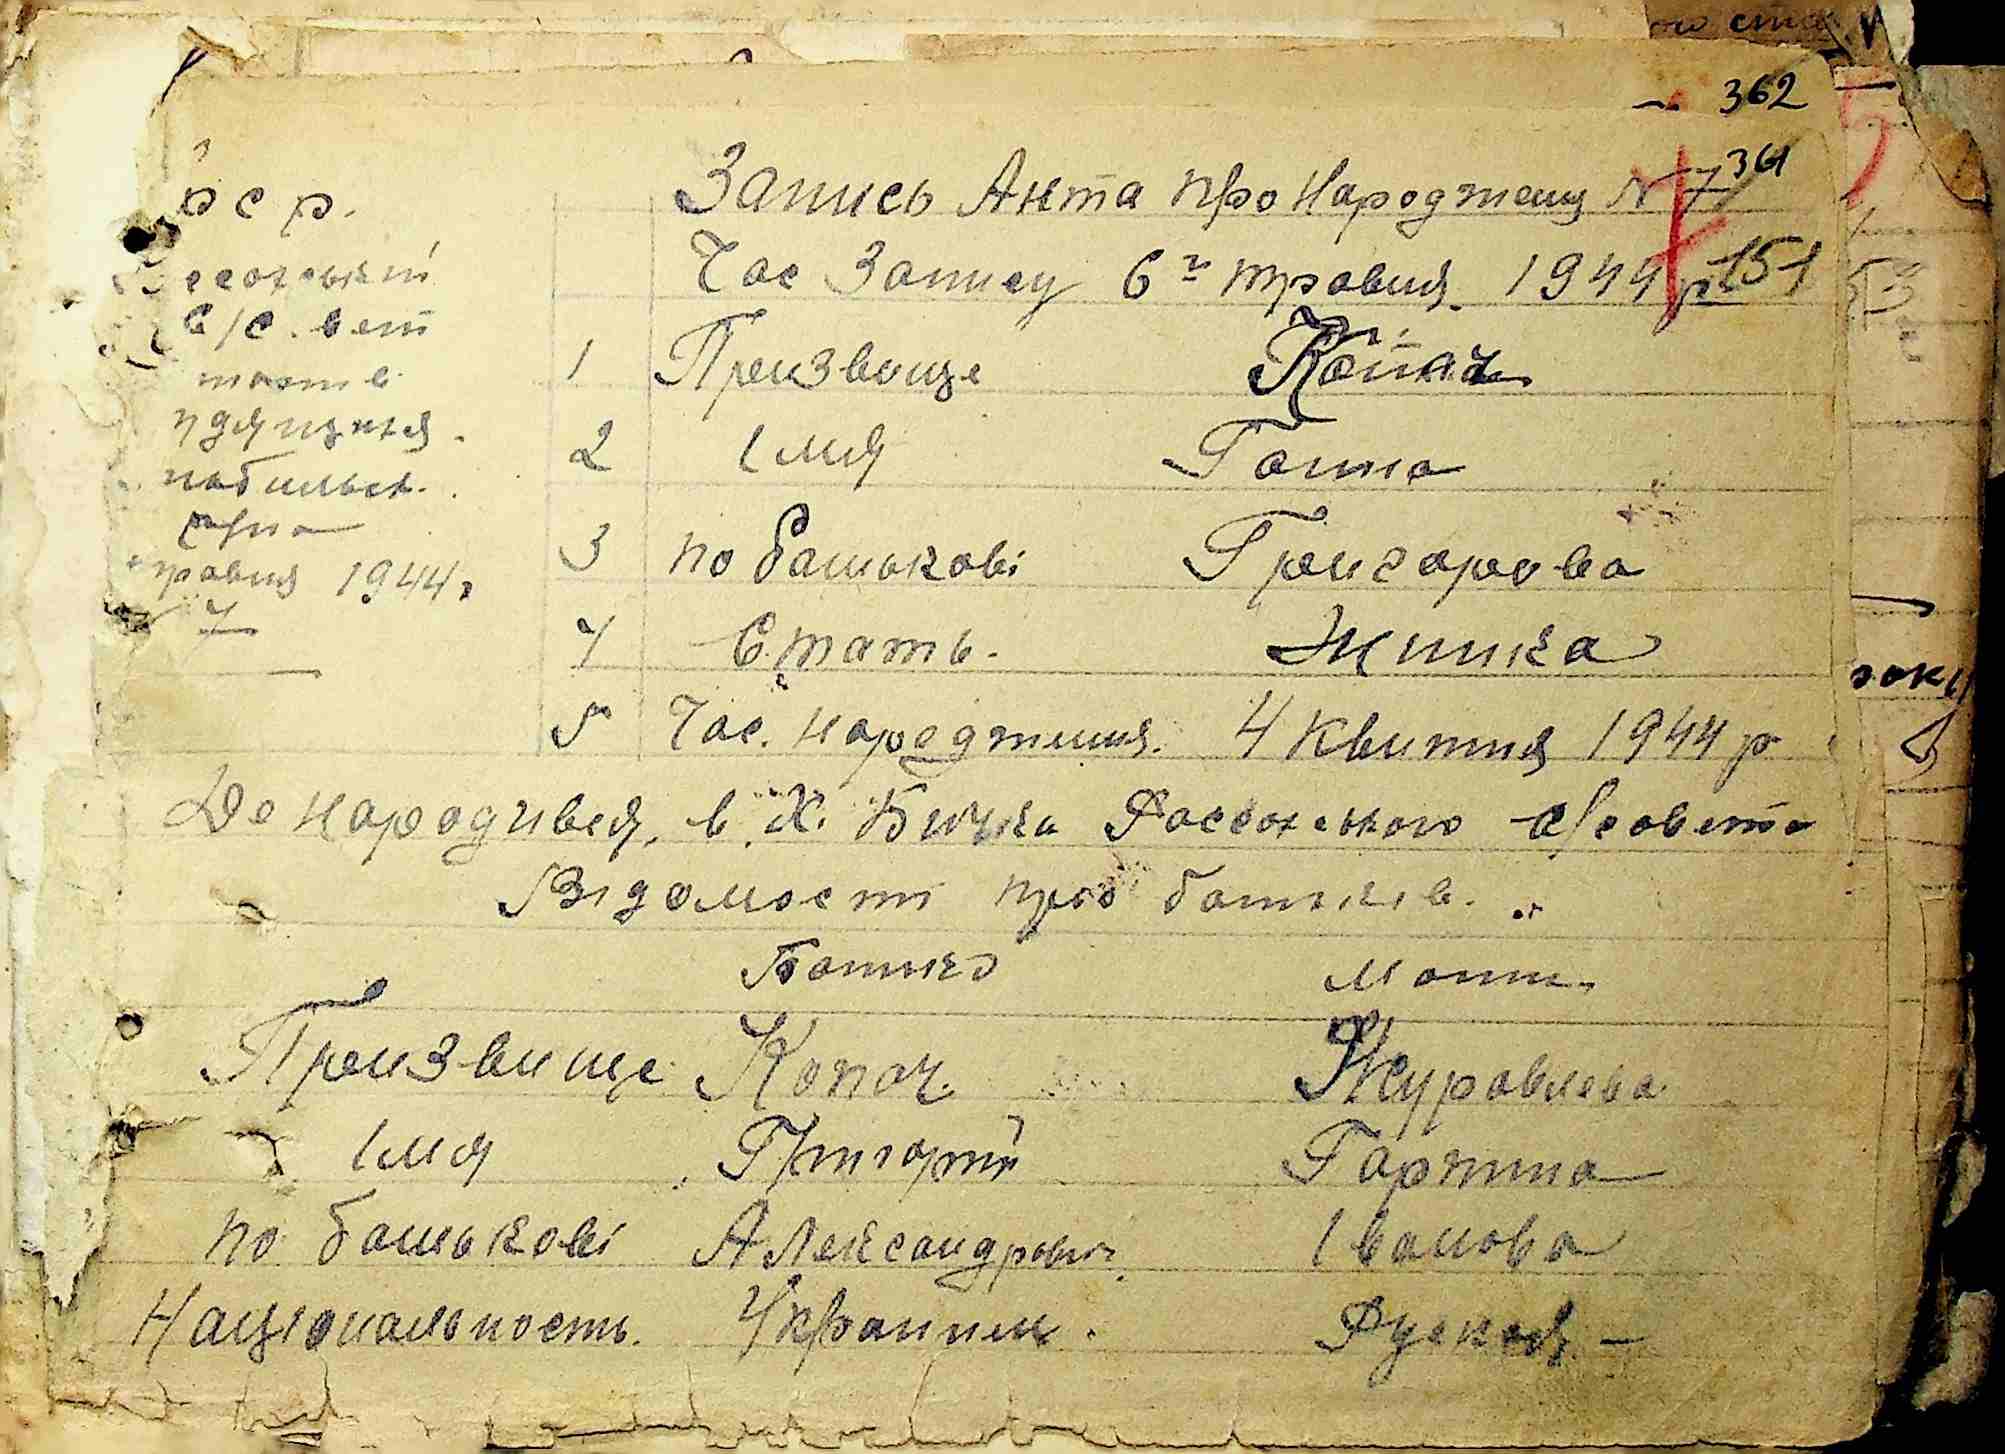 362
361
Р С Р.
Запись Акта про Народження N 7
151
Час Запису 6го травня. 1944 р
с/с. вет
1 Призвище Копач
2 Імя Ганна
набильск.
3 по батькові Григорова
травня 1944 р
7
4 Стать. Жинка
5 Час. народження. 4 Квитня 1944 р
Де народився, в Х. Бичка Россохського с/совета
Відомості про батьків.
Батько Мати.
Призвище Копач Журовлева
Імя Григорій Гарпина
по батькові Александрович Іванова
Національность. Українец. Руская